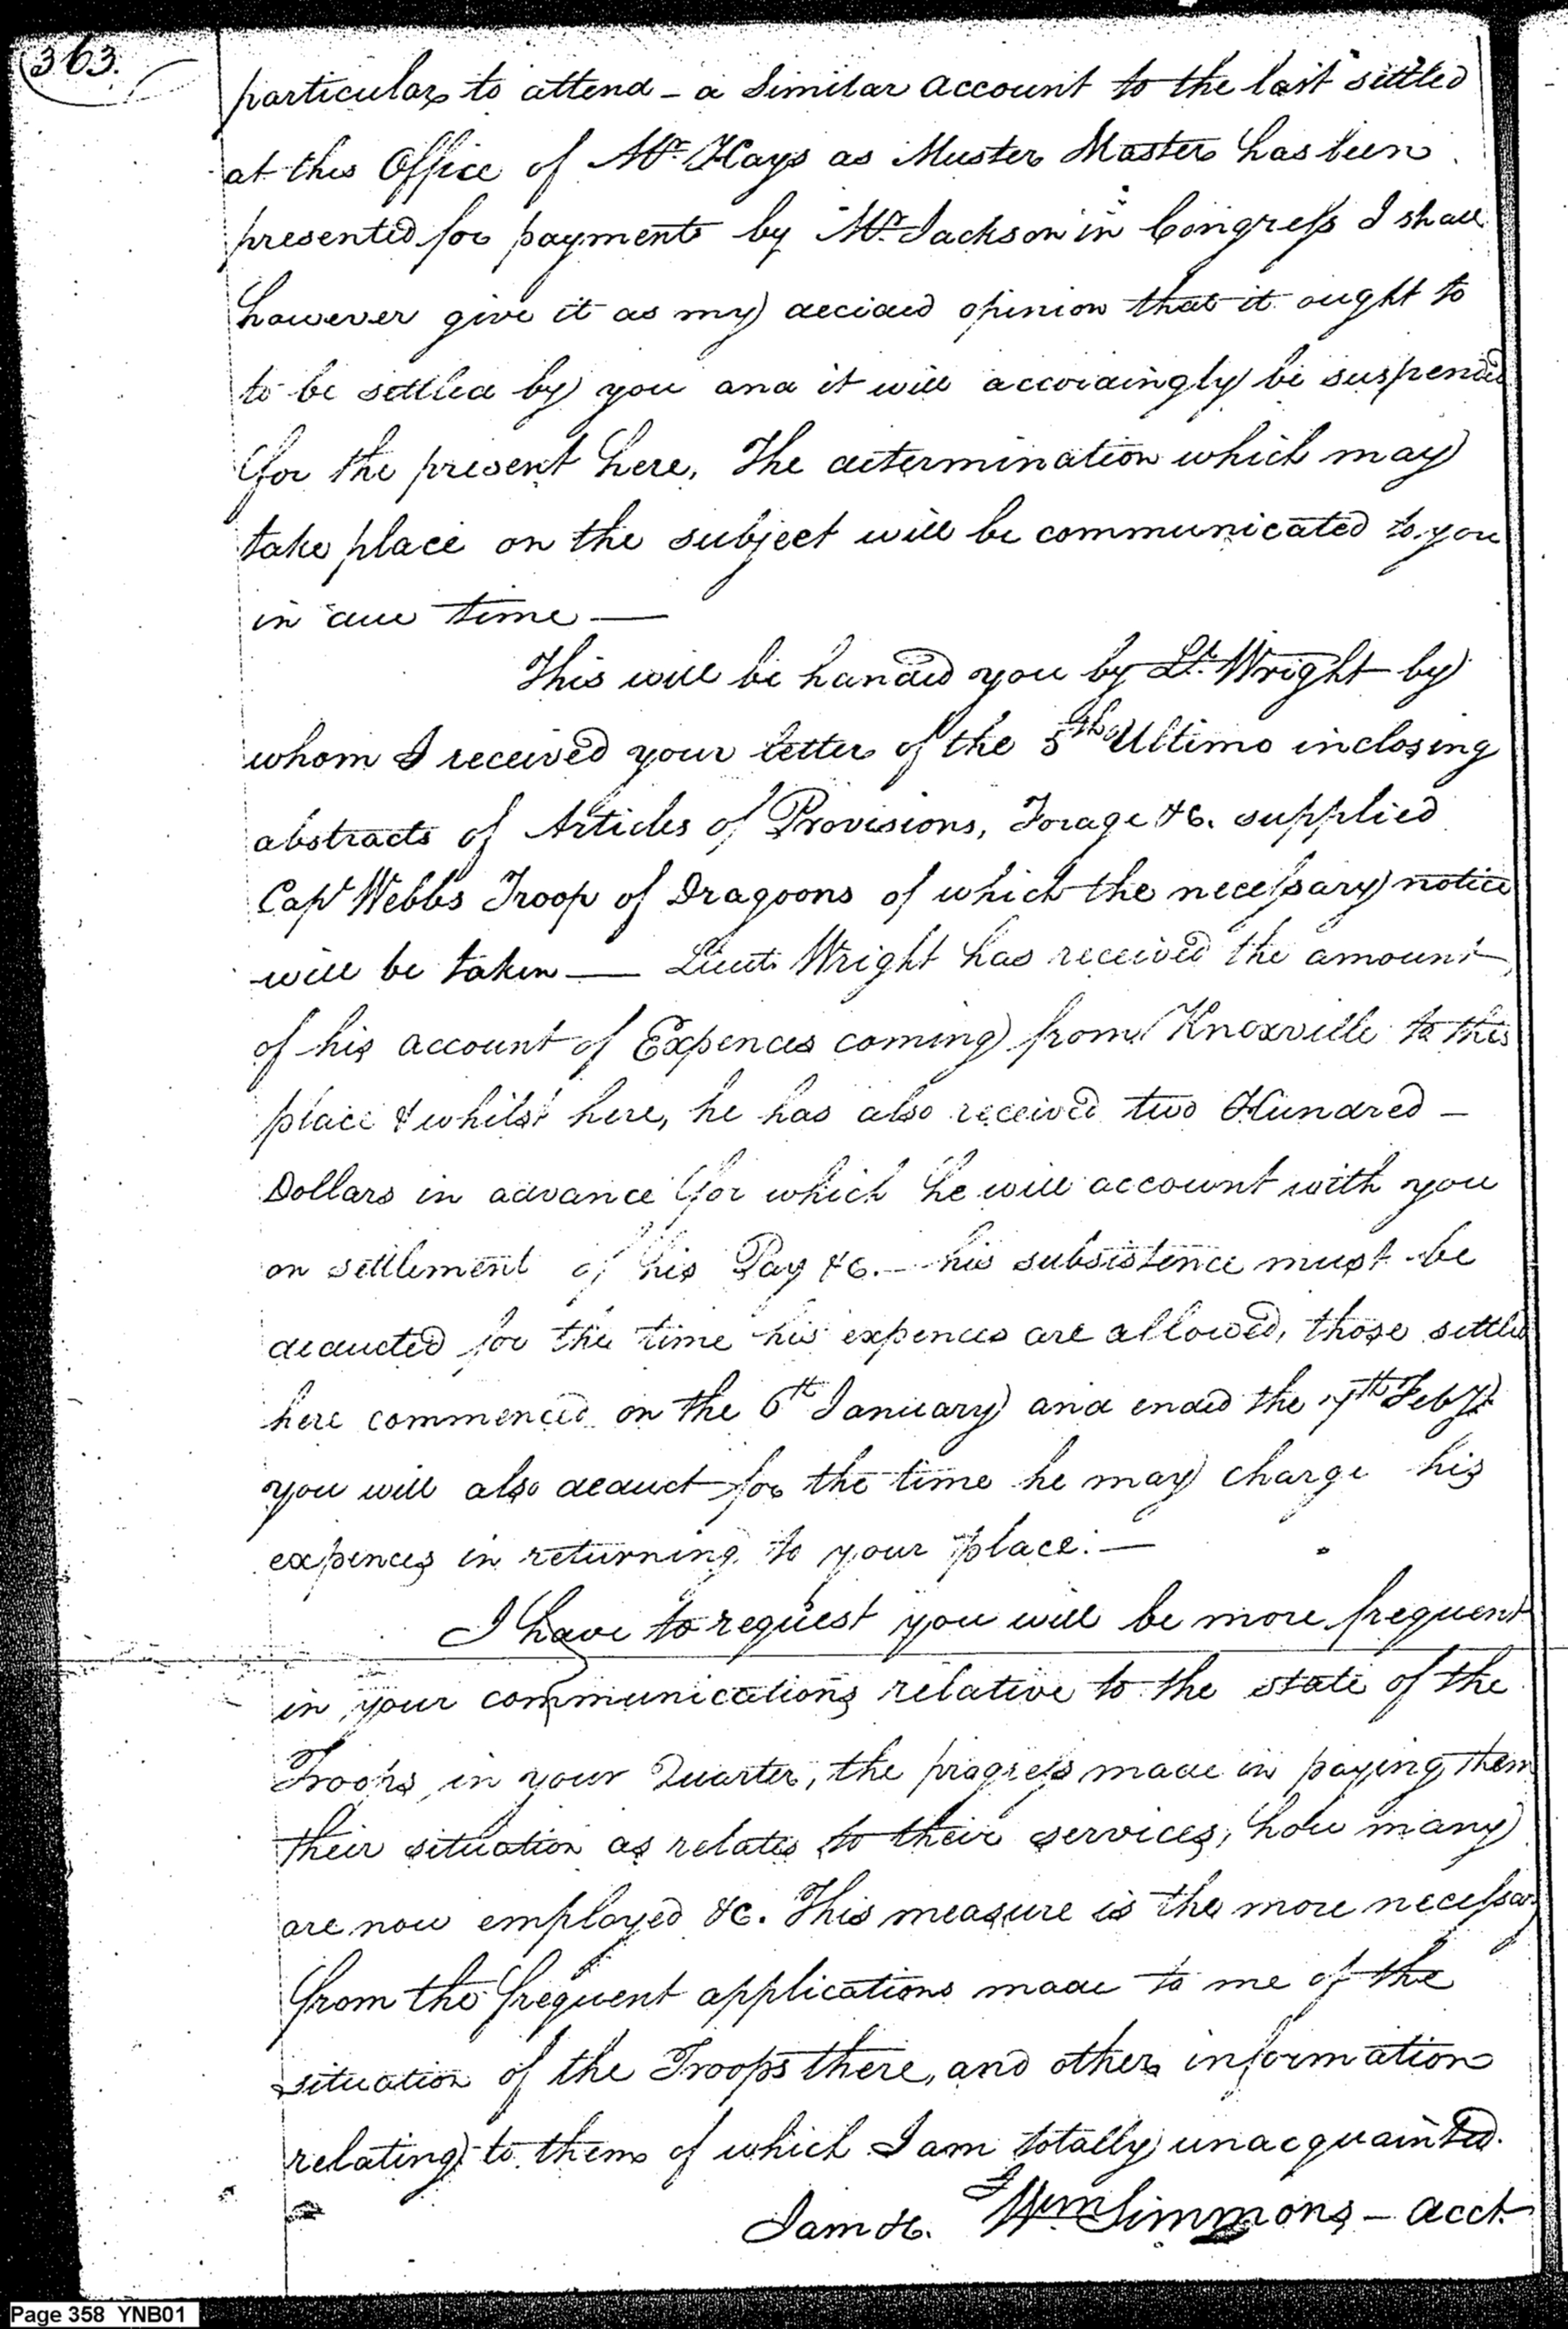 363.
particular to attend – a similar account to the last settled
at this Office of Mr. Hays as Muster Master has been
presented for payment by Mr. Jackson in Congress I shall
however give it as my decided opinion that it ought to
to be settled by you and it will accordingly be suspended
for the present here, The determination which may
take place on the subject will be communicated to you
in due time —
This will be handed you by Lt. Wright by
whom I received your letter of the 5th Ultimo inclosing
abstracts of Articles of Provisions, Forage &c. supplied
Capt Webbs Troop of Dragoons of which the necessary notice
will be taken — Lieut. Wright has received the amount
of his account of Expences coming from Knoxville to this
place & whilst here, he has also received two Hundred –
Dollars in advance for which he will account with you
on settlement of his Pay &c. — his subsistence must be
deducted for the time his expences are allowed, those settled
here commenced on the 6th January and ended the 17th Feby.
you will also deduct for the time he may charge his
expences in returning to your place. —
I have to request you will be more frequent
in your communications relative to the state of the
Troops in your Quarter, the progress made in paying them
their situation as relates to their services, how many
are now employed &c. This measure is the more necessary
from the frequent applications made to me of the
situation of the Troops there, and other information
relating to them of which I am totally unacquainted.
I am &c. Wm Simmons – acct.
Page 358 YNB01